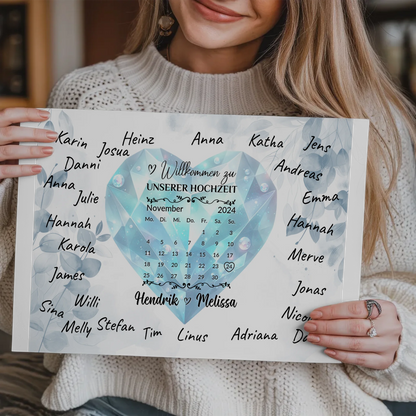 Karin
Josua
Heinz
Anna
Katha
Jens
Danni
Andreas
Anna
Julie
Emma
Hannah
Hannah
Karola
Merve
James
Jonas
Sina
Willi
Melly
Stefan
Tim
Linus
Adriana
Willkommen zu
UNSERER HOCHZEIT
November 2024
Mo. Di. Mi. Do. Fr. Sa. So.
1 2 3
4 5 6 7 8 9 10
11 12 13 14 15 16 17
18 19 20 21 22 23 24
25 26 27 28 29 30
Hendrik ♡ Melissa